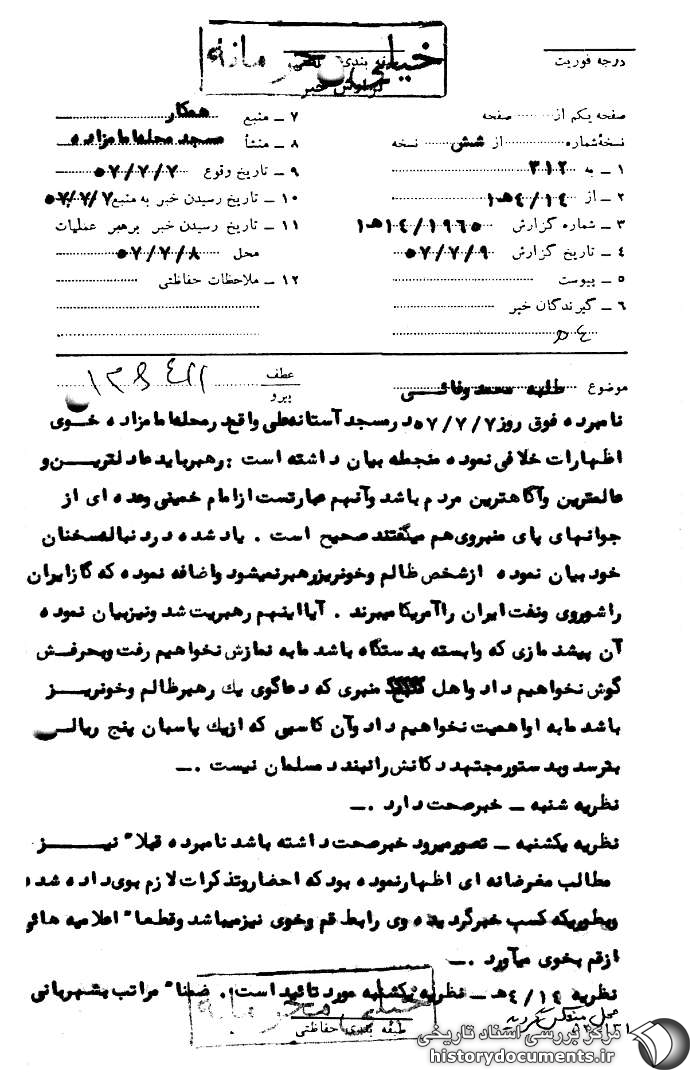 خیلی محرمانه
درجه فوریت
گزارش خبر
صفحه یکم از صفحه
نسخهٔ شماره از شش نسخه
۱ ــ به ۳۱۲
۲ ــ از ۴/۱۴هـ۱
۳ ــ شماره گزارش ۱۴/۱۹۶۵هـ۱
۴ ــ تاریخ گزارش ۵۷/۷/۹
۵ ــ پیوست
۶ ــ گیرندگان خبر
۷ ــ منبع همکار
۸ ــ منشأ مسجد محله امامزاده
۹ ــ تاریخ وقوع ۵۷/۷/۷
۱۰ ــ تاریخ رسیدن خبر به منبع ۵۷/۷/۷
۱۱ ــ تاریخ رسیدن خبر برهبر عملیات
محل ۵۷/۷/۸
۱۲ ــ ملاحظات حفاظتی
موضوع طلبه محمد وفائی
عطف
پیرو
نامبرده فوق روز ۵۷/۷/۷ در مسجد آستانه علی واقع در محله امامزاده خوی
اظهارات خلافی نموده منجمله بیان داشته است : رهبر باید عادلترین و
عالمترین وآگاهترین مردم باشد وآنهم عبارتست از امام خمینی وعده ای از
جوانهای پای منبر وی هم میگفتند صحیح است . یاد شده در دنباله سخنان
خود بیان نموده از شخص ظالم وخونریز رهبر نمیشود واضافه نموده که گاز ایران
را شوروی ونفت ایران را آمریکا میبرند . آیا اینهم رهبریت شد ونیز بیان نموده
آن پیشنمازی که وابسته بدستگاه باشد ما به نمازش نخواهیم رفت وبحرفش
گوش نخواهیم داد واهل منبری که دعاگوی یك رهبر ظالم وخونریز
باشد ما به او اهمیت نخواهیم داد وآن کاسبی که از یك پاسبان پنج ریالی
بترسد وبدستور مجتهد دکانش را نبندد مسلمان نیست .ــ
نظریه شنبه ــ خبر صحت دارد .ــ
نظریه یکشنبه ــ تصور میرود خبر صحت داشته باشد نامبرده قبلا" نیز
مطالب مغرضانه ای اظهار نموده بود که احضار وتذکرات لازم بوی داده شد
وبطوریکه کسب خبر گردیده وی رابط قم وخوی نیز میباشد وقطعا" اعلامیه هائی
از قم بخوی میآورد .ــ
نظریه ۴/۱۴هـ ــ نظریه یکشنبه مورد تائید است . ضمنا" مراتب بشهربانی
محل منعکس گردید
خیلی محرمانه
طبقه بندی حفاظتی
مرکز بررسی اسناد تاریخی
historydocuments.ir